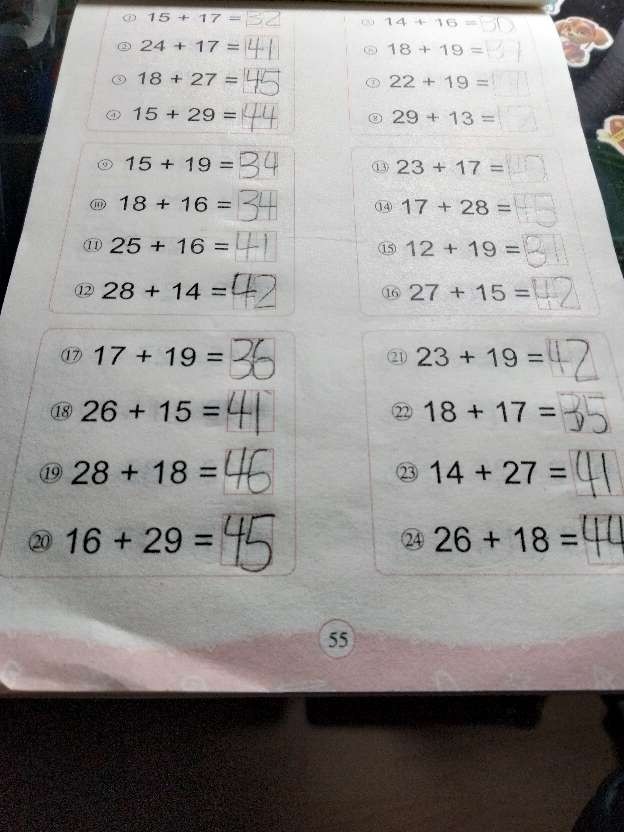 ① 15 + 17 = 32
② 24 + 17 = 41
③ 18 + 27 = 45
④ 15 + 29 = 44
⑤ 14 + 16 = 30
⑥ 18 + 19 = 37
⑦ 22 + 19 =
⑧ 29 + 13 =
⑨ 15 + 19 = 34
⑩ 18 + 16 = 34
⑪ 25 + 16 = 41
⑫ 28 + 14 = 42
⑬ 23 + 17 = 40
⑭ 17 + 28 = 45
⑮ 12 + 19 = 31
⑯ 27 + 15 = 42
⑰ 17 + 19 = 36
⑱ 26 + 15 = 41
⑲ 28 + 18 = 46
⑳ 16 + 29 = 45
㉑ 23 + 19 = 42
㉒ 18 + 17 = 35
㉓ 14 + 27 = 41
㉔ 26 + 18 = 44
55